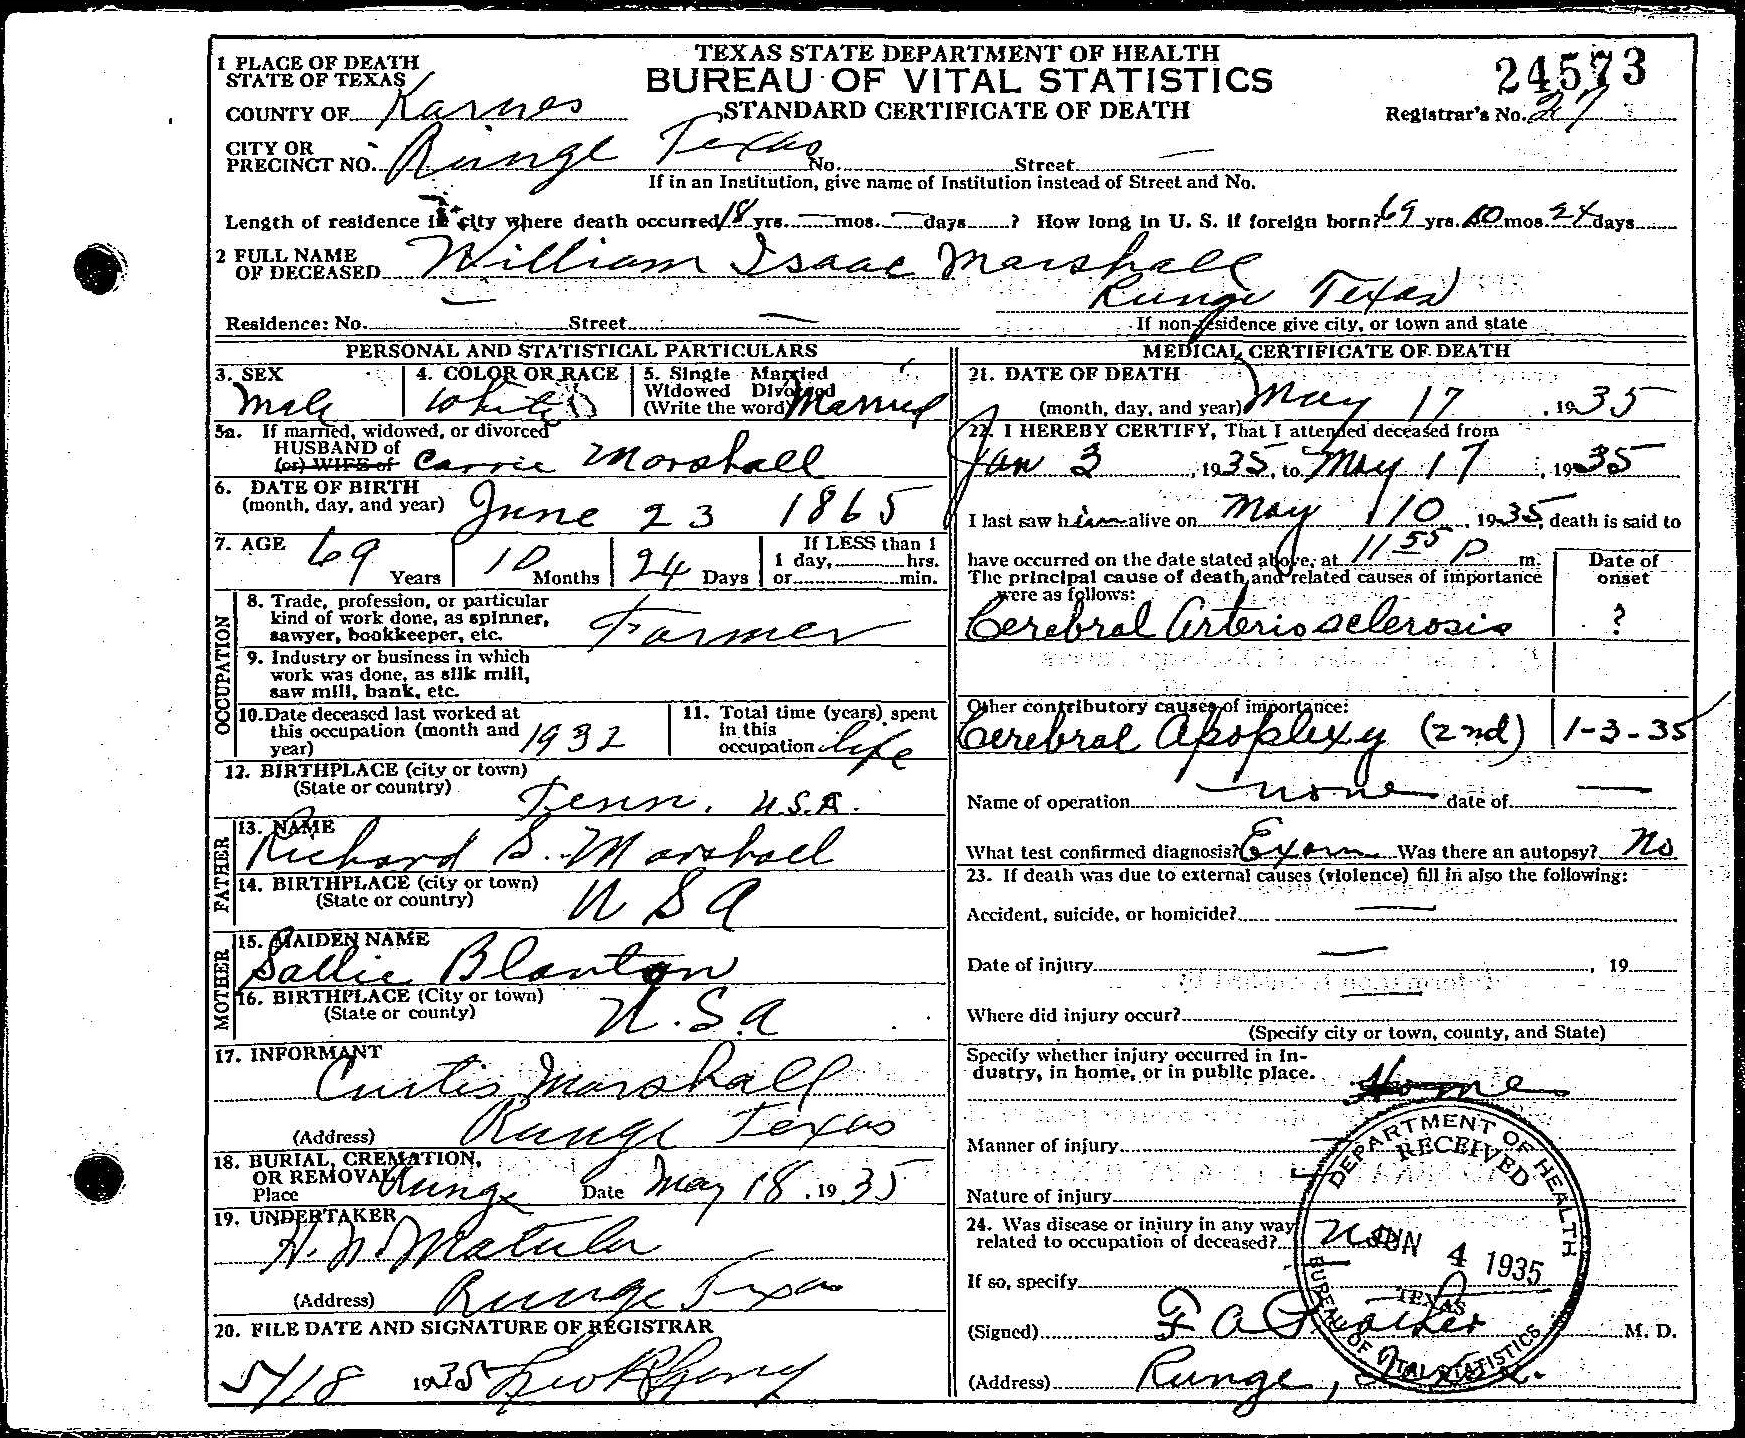 TEXAS STATE DEPARTMENT OF HEALTH
BUREAU OF VITAL STATISTICS
STANDARD CERTIFICATE OF DEATH
24573
Registrar's No. 27
1 PLACE OF DEATH
STATE OF TEXAS
COUNTY OF Karnes
CITY OR
PRECINCT NO. Runge Texas No. Street —
If in an Institution, give name of Institution instead of Street and No.
Length of residence in city where death occurred 18 yrs. — mos. — days ? How long in U. S. if foreign born? 69 yrs. 10 mos. 24 days
2 FULL NAME
OF DECEASED William Isaac Marshall
Runge Texas
Residence: No. — Street —
If non-residence give city, or town and state
PERSONAL AND STATISTICAL PARTICULARS
3. SEX
Male
4. COLOR OR RACE
White
5. Single Married
Widowed Divorced
(Write the word) Married
5a. If married, widowed, or divorced
HUSBAND of
(or) WIFE of Carrie Marshall
6. DATE OF BIRTH
(month, day, and year) June 23 1865
7. AGE 69 Years 10 Months 24 Days
If LESS than 1
1 day, hrs.
or min.
OCCUPATION
8. Trade, profession, or particular
kind of work done, as spinner,
sawyer, bookkeeper, etc. Farmer
9. Industry or business in which
work was done, as silk mill,
saw mill, bank, etc.
10. Date deceased last worked at
this occupation (month and
year) 1932
11. Total time (years) spent
in this
occupation life
12. BIRTHPLACE (city or town)
(State or country) Tenn. U.S.A.
FATHER
13. NAME
Richard S. Marshall
14. BIRTHPLACE (city or town)
(State or country) U S A
MOTHER
15. MAIDEN NAME
Sallie Blanton
16. BIRTHPLACE (City or town)
(State or county) U.S.A
17. INFORMANT
Curtis Marshall
(Address) Runge Texas
18. BURIAL, CREMATION,
OR REMOVAL
Place Runge Date May 18, 1935
19. UNDERTAKER
H. N. Matula
(Address) Runge Texas
20. FILE DATE AND SIGNATURE OF REGISTRAR
5/18 1935
MEDICAL CERTIFICATE OF DEATH
21. DATE OF DEATH
(month, day, and year) May 17, 1935
22. I HEREBY CERTIFY, That I attended deceased from
Jan 3, 1935, to May 17, 1935
I last saw him alive on May 10, 1935, death is said to
have occurred on the date stated above, at 11 55 P m.
The principal cause of death and related causes of importance
were as follows:
Date of
onset
Cerebral Arteriosclerosis ?
Other contributory causes of importance:
Cerebral Apoplexy (2nd) 1-3-35
Name of operation none date of —
What test confirmed diagnosis? Exam Was there an autopsy? No
23. If death was due to external causes (violence) fill in also the following:
Accident, suicide, or homicide? —
Date of injury — , 19
Where did injury occur? —
(Specify city or town, county, and State)
Specify whether injury occurred in In-
dustry, in home, or in public place. Home
Manner of injury
Nature of injury
24. Was disease or injury in any way
related to occupation of deceased? no
If so, specify
(Signed) F A M. D.
(Address) Runge, Tex.
DEPARTMENT OF HEALTH
RECEIVED
JUN 4 1935
TEXAS
BUREAU OF VITAL STATISTICS